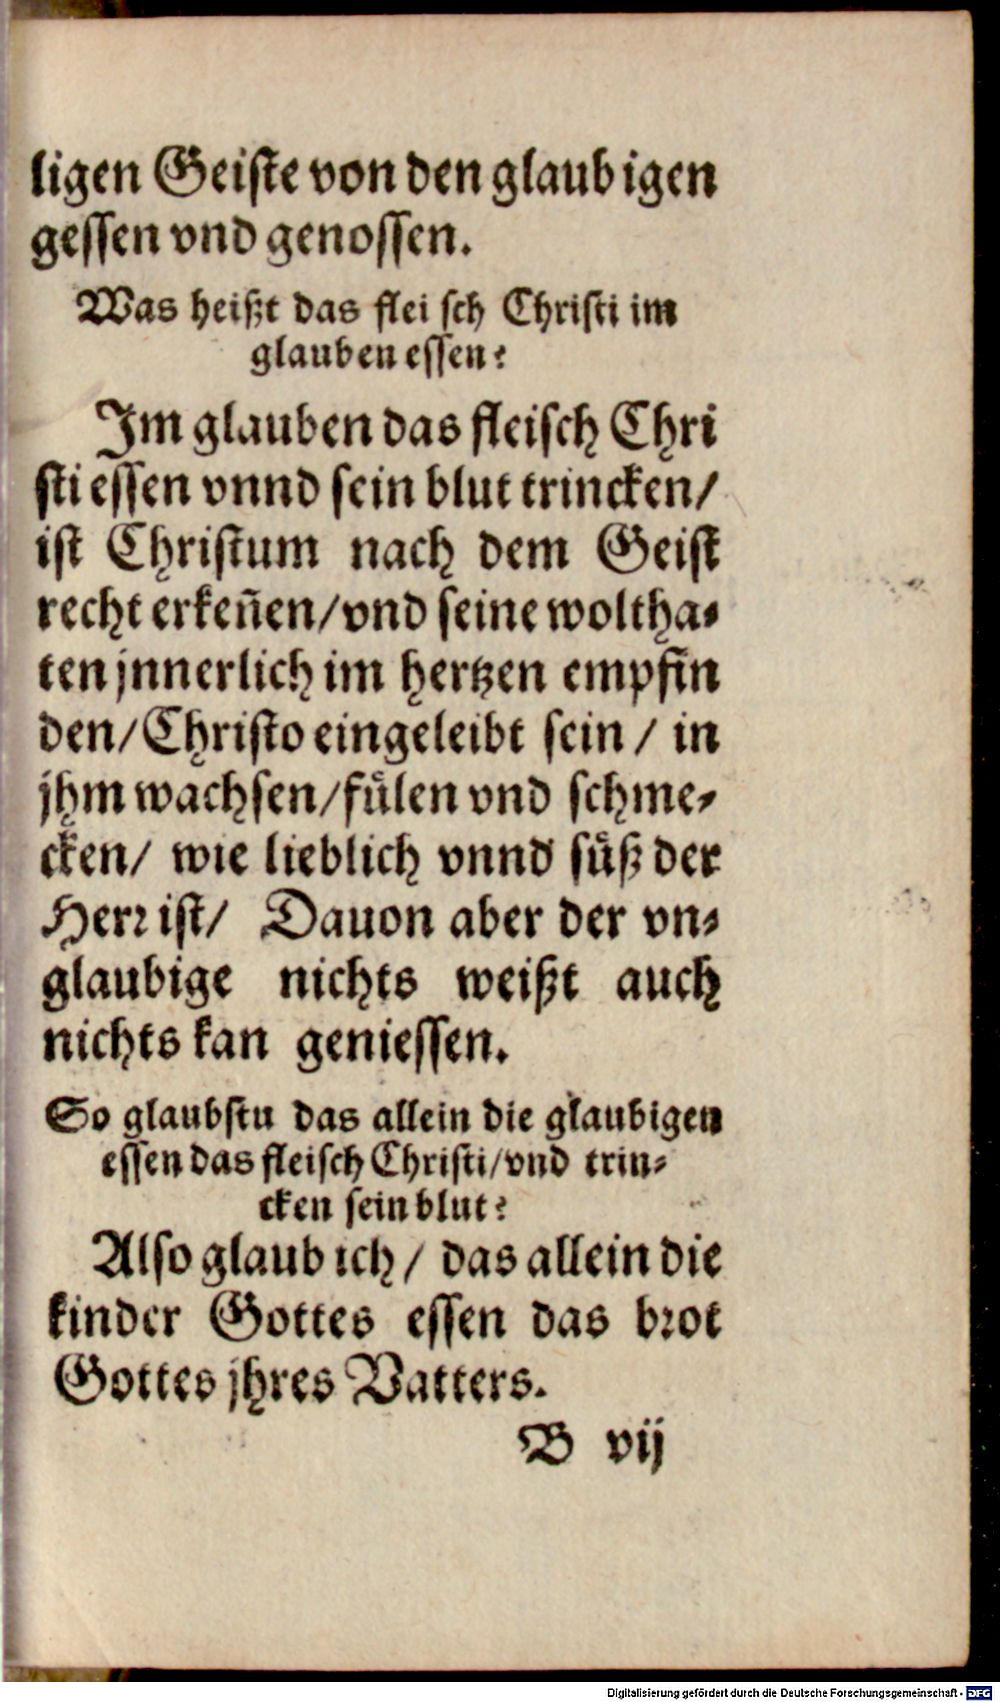 ligen Geiste von den glaubigen
gessen vnd genossen.
Was heißt das fleisch Christi im
glauben essen?
Im glauben das fleisch Chri
sti essen vnnd sein blut trincken/
ist Christum nach dem Geist
recht erkeñen/vnd seine woltha-
ten jnnerlich im hertzen empfin
den/Christo eingeleibt sein / in
jhm wachsen/fuͤlen vnd schme-
cken/ wie lieblich vnnd suͤß der
Herr ist/ Dauon aber der vn-
glaubige nichts weißt auch
nichts kan geniessen.
So glaubstu das allein die glaubigen
essen das fleisch Christi/vnd trin-
cken sein blut?
Also glaub ich/ das allein die
kinder Gottes essen das brot
Gottes jhres Vatters.
B vij
Digitalisierung gefördert durch die Deutsche Forschungsgemeinschaft - DFG